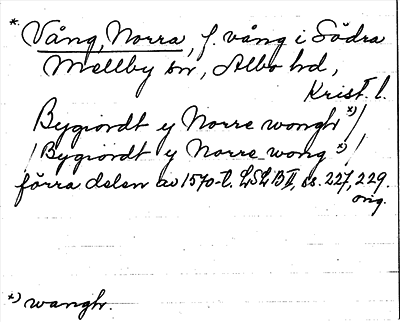 * Vång, Norra, f. vång i Södra
Mellby sn, Albo hd,
Krist. l.
Bygiordt y Norre wongh *) /
/ Bygiordt y Norre wong *) /
förra delen av 1570-t. LSLB II, ss. 227, 229.
orig.
*) wangh.